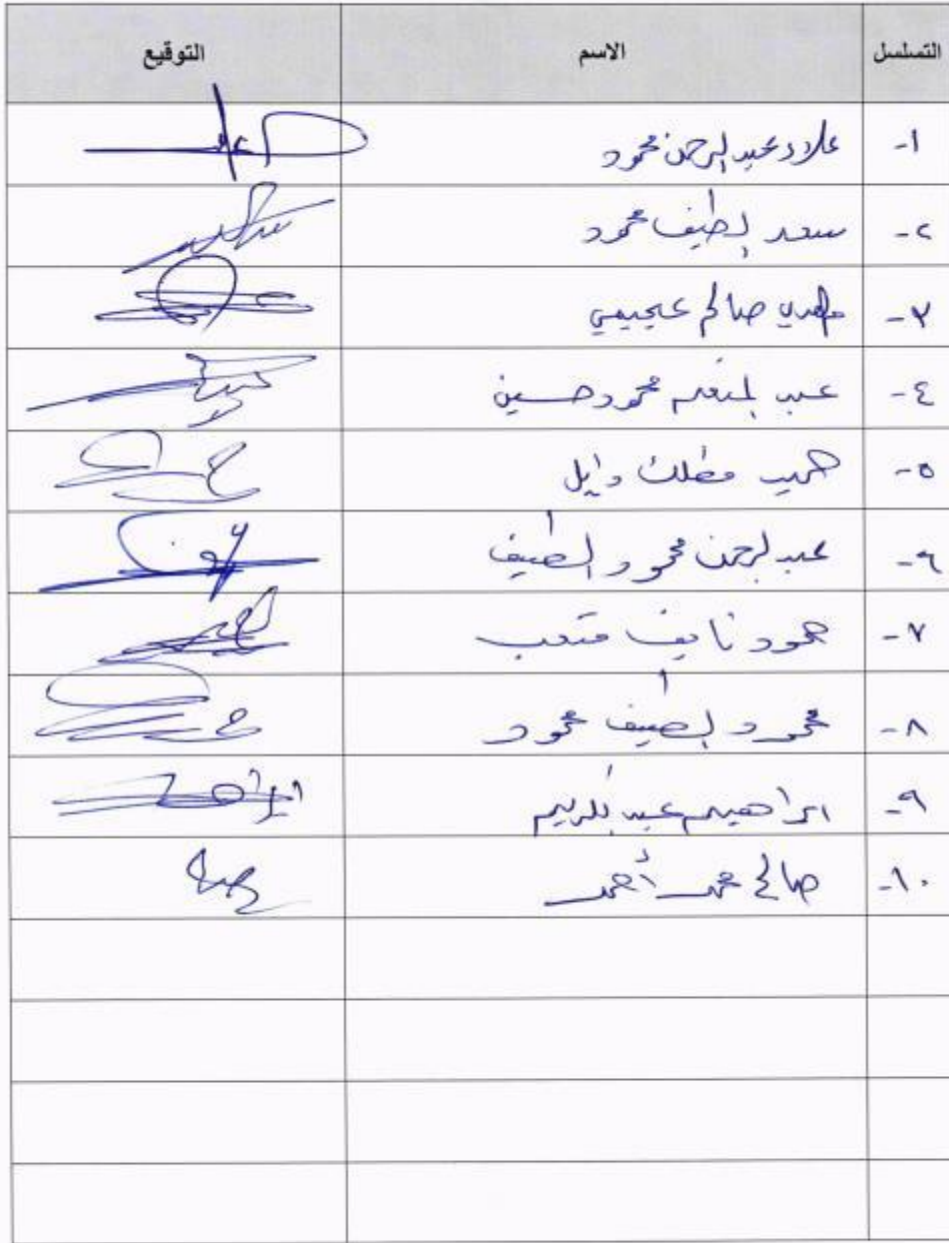 التسلسل الاسم التوقيع
١- علاء عبد الرحمن محمود
٢- سعد لطيف محمود
٣- مهدي صالح عجيمي
٤- عبد المنعم محمود حسين
٥- حميد مطلك وايل
٦- عبد الرحمن محمود الطيف
٧- حمود نايف متعب
٨- محمود لطيف محمود
٩- ابراهيم عبد الكريم
١٠- صالح محمد أحمد